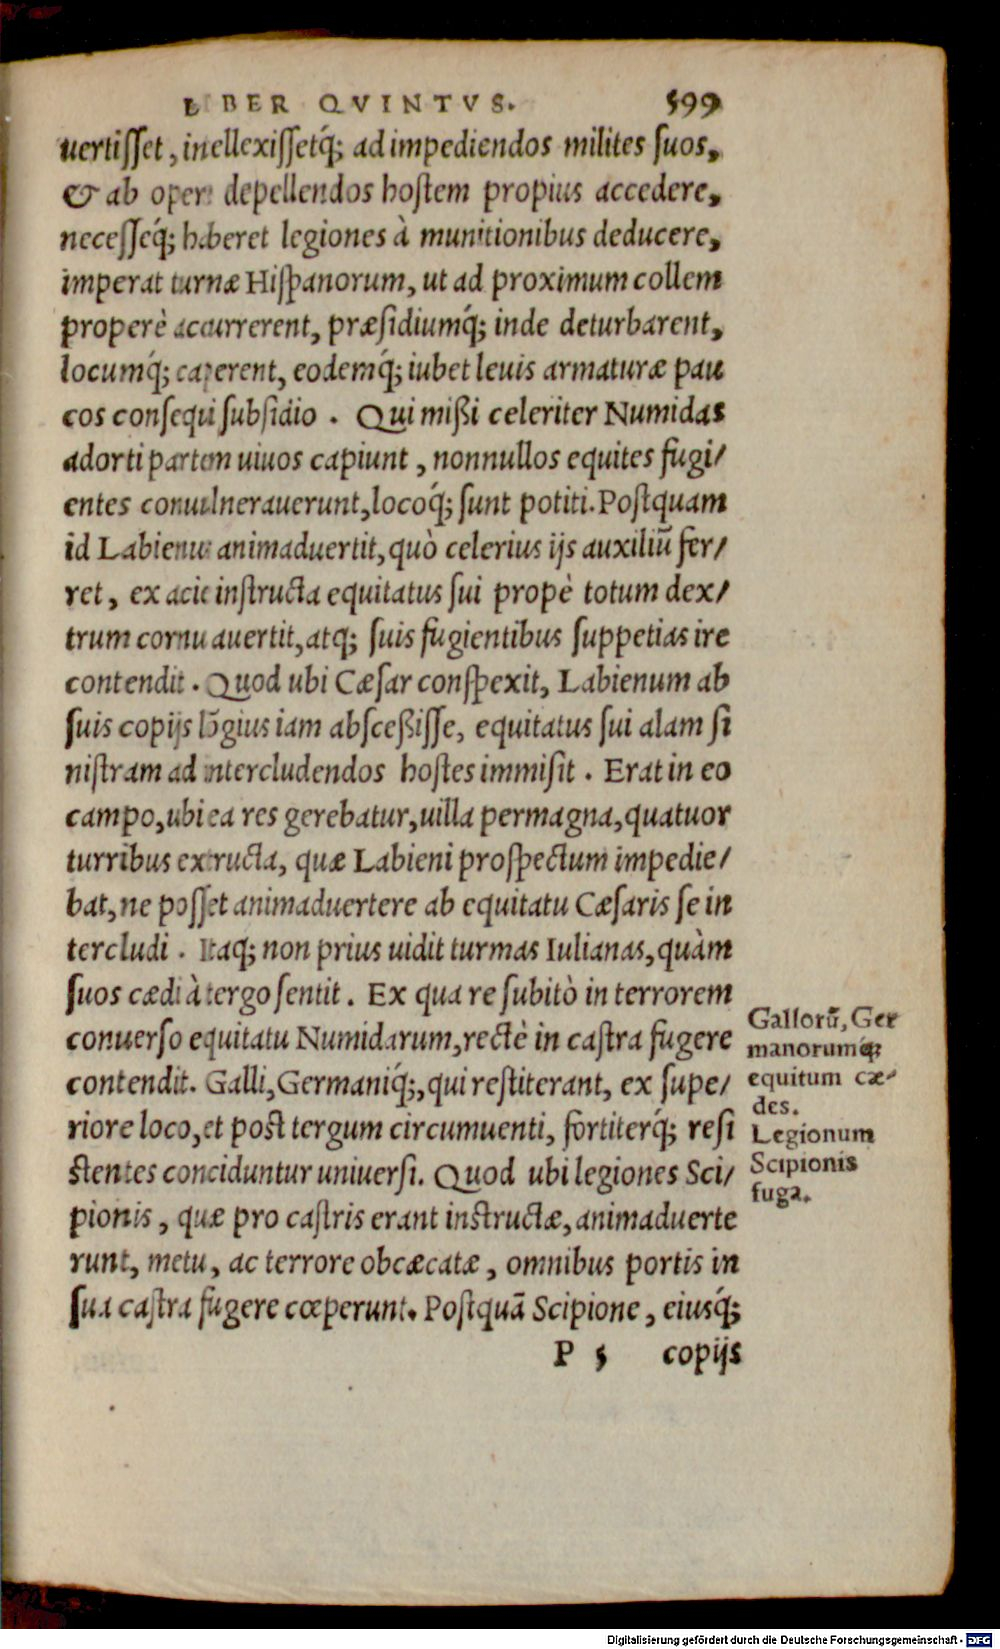 LIBER QVINTVS. 599
uertisset, inellexissetq́; ad impediendos milites suos,
& ab opere depellendos hostem propius accedere,
necesseq́; haberet legiones à munitionibus deducere,
imperat turmæ Hispanorum, ut ad proximum collem
properè accurrerent, præsidiumq́; inde deturbarent,
locumq́; caperent, eodemq́; iubet leuis armaturæ pau
cos consequi subsidio. Qui mißi celeriter Numidas
adorti partem uiuos capiunt, nonnullos equites fugi/
entes conuulnerauerunt, locoq́; sunt potiti. Postquam
id Labienus animaduertit, quò celerius ijs auxiliũ fer/
ret, ex acie instructa equitatus sui propè totum dex/
trum cornu auertit, atq; suis fugientibus suppetias ire
contendit. Quod ubi Cæsar conspexit, Labienum ab
suis copijs lõgius iam absceßisse, equitatus sui alam si
nistram ad intercludendos hostes immisit. Erat in eo
campo, ubi ea res gerebatur, uilla permagna, quatuor
turribus extructa, quæ Labieni prospectum impedie/
bat, ne posset animaduertere ab equitatu Cæsaris se in
tercludi. Itaq; non prius uidit turmas Iulianas, quàm
suos cædi à tergo sentit. Ex qua re subitò in terrorem
conuerso equitatu Numidarum, rectè in castra fugere
contendit. Galli, Germaniq́;, qui restiterant, ex supe/
riore loco, et post tergum circumuenti, fortiterq́; resi
stentes conciduntur uniuersi. Quod ubi legiones Sci/
pionis, quæ pro castris erant instructæ, animaduerte
runt, metu, ac terrore obcæcatæ, omnibus portis in
sua castra fugere cœperunt. Postquã Scipione, eiusq́;
P 5 copijs
Gallorũ, Ger
manorumq́;
equitum cæ-
des.
Legionum
Scipionis
fuga.
Digitalisierung gefördert durch die Deutsche Forschungsgemeinschaft - DFG